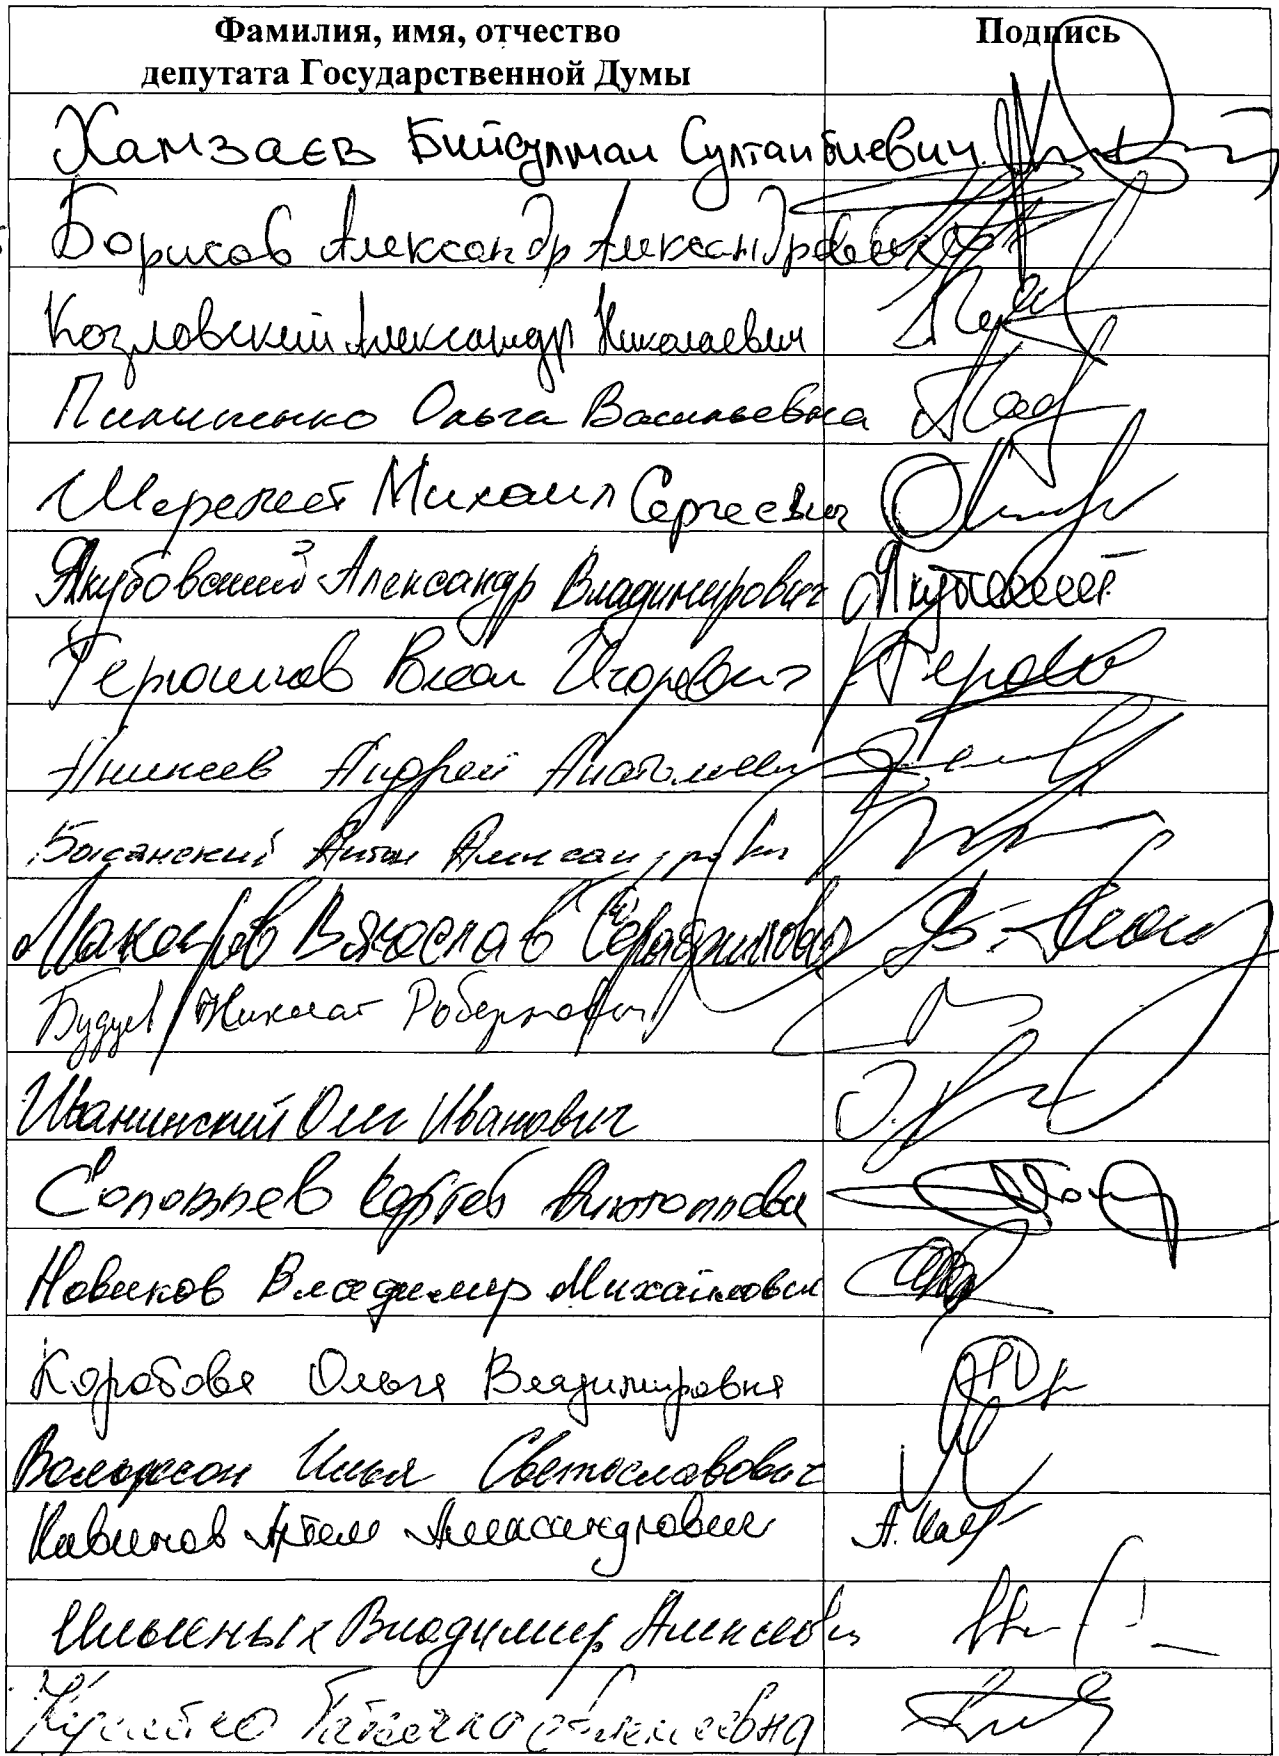 Фамилия, имя, отчество
депутата Государственной Думы
Подпись
Хамзаев Бийсултан Султанбиевич
Борисов Александр Александрович
Козловский Александр Николаевич
Пилипенко Ольга Васильевна
Шеремет Михаил Сергеевич
Якубовский Александр Владимирович
Игоревич
Аникеев Андрей Анатольевич
Антон Александрович
Макаров Вячеслав Серафимович
Будуев Николай Робертович
Иванинский Олег Иванович
Соловьев Сергей Анатольевич
Новиков Владимир Михайлович
Коробова Ольга Владимировна
Вольфсон Илья Светославович
Кавинов Артем Александрович
А. Кав
Ильиных Владимир Алексеевич
Алексеевна